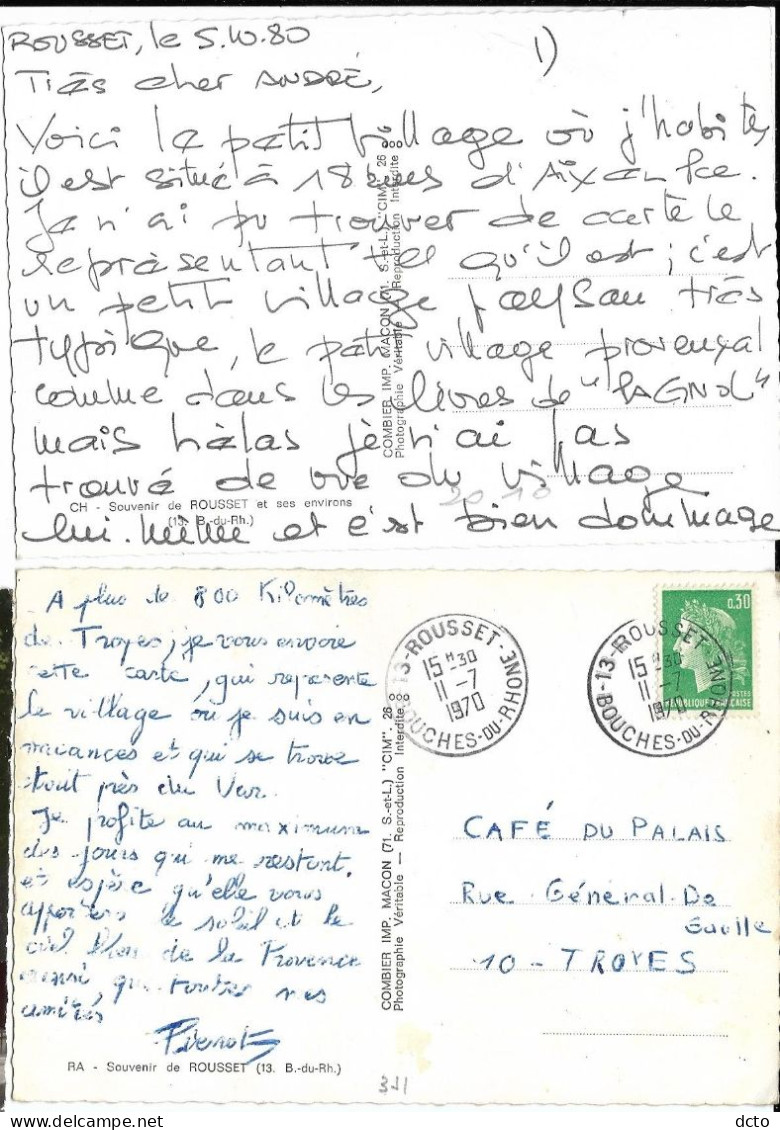 ROUSSET, le 5.10.80
1)
Très cher ANDRÉ,
Voici le petit village où j'habite,
il est situé à 18 kms d'Aix en Pce.
Je n'ai pu trouver de carte le
représentant tel qu'il est ; c'est
un petit village paysan très
typique, le petit village provençal
comme dans les livres de "PAGNOL"
mais hélas je n'ai pas
trouvé de vue du village
lui-même et c'est bien dommage
CH - Souvenir de ROUSSET et ses environs
(13. B.-du-Rh.)
COMBIER IMP. MACON (71. S.-et-L.) "CIM" 26
Photographie Véritable Reproduction Interdite
A plus de 800 Kilomètres
de Troyes, je vous envoie
cette carte, qui représente
le village où je suis en
vacances et qui se trouve
tout près du Var.
Je profite au maximum
des jours qui me restent,
et espère qu'elle vous
apportera le soleil et le
ciel bleu de la Provence
ainsi que toutes mes
amitiés
RA - Souvenir de ROUSSET (13. B.-du-Rh.)
COMBIER IMP. MACON (71. S.-et-L.) "CIM" 26
Photographie Véritable — Reproduction Interdite
13-ROUSSET
15 H 30
11 - 7
1970
BOUCHES-DU-RHONE
13-ROUSSET
15 H 30
11 - 7
1970
BOUCHES-DU-RHONE
0,30
POSTES
REPUBLIQUE FRANÇAISE
CAFÉ DU PALAIS
Rue Général De
Gaulle
10 - TROYES
321
dcto